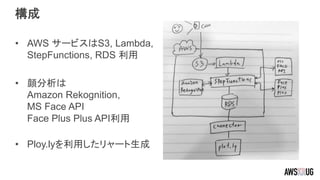 構成
• AWS サービスはS3, Lambda,
StepFunctions, RDS 利用
• 顔分析は
Amazon Rekognition,
MS Face API
Face Plus Plus API利用
• Ploy.lyを利用したリャート生成
Com
AWS
S3
Lambda
Amazon
Rekognition
StepFunctions
MS
FACE
API
Face
Plus
Plus
RDS
connector
plot.ly
AWSKRUG